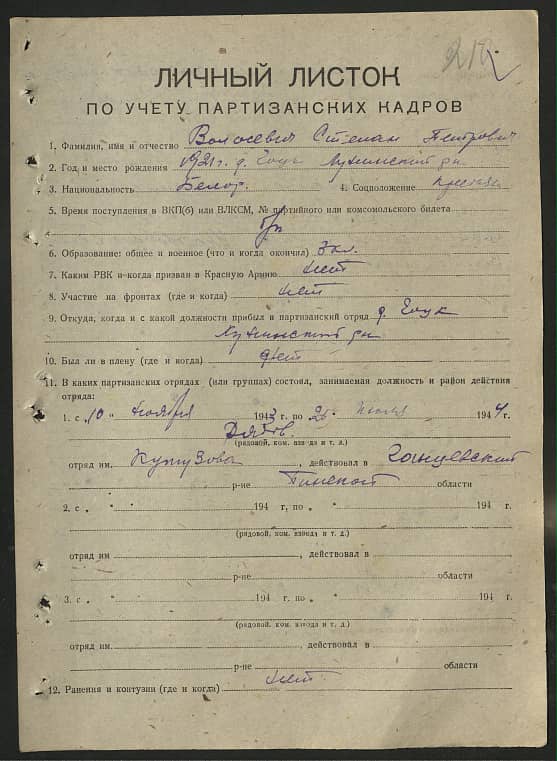 212
ЛИЧНЫЙ ЛИСТОК
ПО УЧЕТУ ПАРТИЗАНСКИХ КАДРОВ
1. Фамилия, имя и отчество Волосевич Степан Петрович
2. Год и место рождения 1921 г. д.
3. Национальность Белор. 4. Соцположение
5. Время поступления в ВКП(б) или ВЛКСМ, № партийного или комсомольского билета
б/п
6. Образование: общее и военное (что и когда окончил) 3 кл.
7. Каким РВК и когда призван в Красную Армию нет
8. Участие на фронтах (где и когда) нет
9. Откуда, когда и с какой должности прибыл в партизанский отряд д.
10. Был ли в плену (где и когда) нет
11. В каких партизанских отрядах (или группах) состоял, занимаемая должность и район действия
отряда:
1. с „10 " ноября 1943 г. по 25 июля 1944 г.
Рядов.
(рядовой, ком. взвода и т. д.)
отряд им. Кутузова, действовал в Ганцевский
р-не Пинской области
2. с „ " 194 г., по „ " 194 г.
(рядовой, ком. взвода и т. д.)
отряд им , действовал в
р-не области
3. с „ " 194 г. по „ " 194 г.
(рядовой, ком. взвода и т. д.)
отряд им. , действовал в
р-не области
12. Ранения и контузии (где и когда) нет.